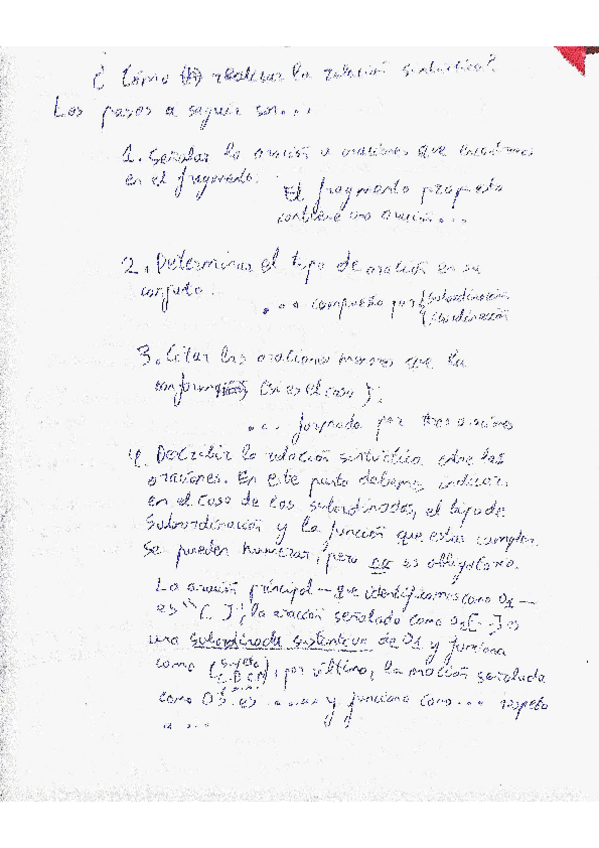 ¿ Cómo realizar la relación sintáctica?
Los pasos a seguir son...
1. Señalar la oración u oraciones que encontramos
en el fragmento.
El fragmento propuesto
contiene una oración...
2. Determinar el tipo de oración en su
conjunto.
... compuesta por { subordinación
{ coordinación
3. Citar las oraciones menores que la
conforman (si es el caso).
... formada por tres oraciones
4. Describir la relación sintáctica entre las
oraciones. En este punto debemos indicar,
en el caso de las subordinadas, el tipo de
subordinación y la función que estas cumplen.
Se pueden numerar, pero no es obligatorio.
La oración principal — que identificamos como O1 —
es "[ ]"; la oración señalada como O2 [..] es
una subordinada sustantiva de O1 y funciona
como (Sujeto
C.D. C.N.); por último, la oración señalada
como O3 es ...... y funciona como ... respeto
.....